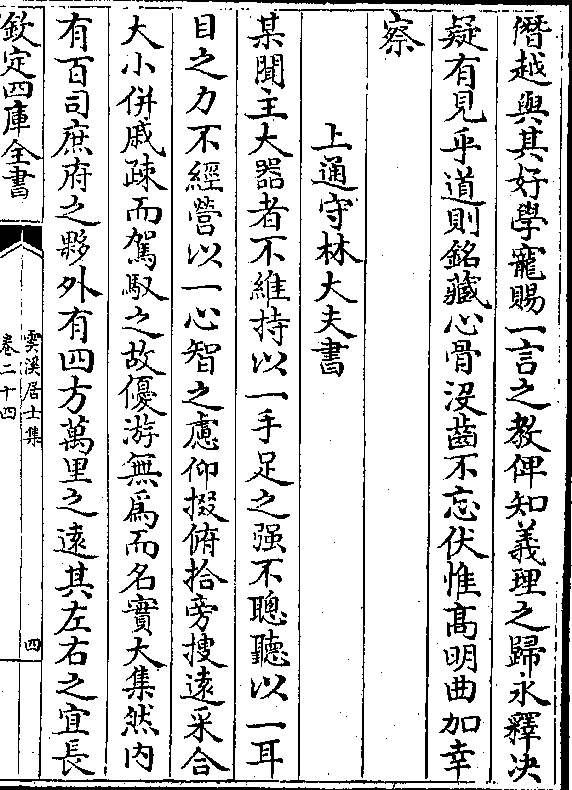 僭越與其好學寵賜一言之教俾知義理之歸永釋決
疑有見乎道則銘藏心骨沒齒不忘伏惟高明曲加幸
察
上通守林大夫書
某聞主大器者不維持以一手足之强不聰聽以一耳
目之力不經營以一心智之慮仰掇俯拾旁搜遠采合
大小併戚疎而駕馭之故優游無爲而名實大集然内
有百司庶府之夥外有四方萬里之遠其左右之宜長
欽定四庫全書
雲溪居士集
卷二十四
四